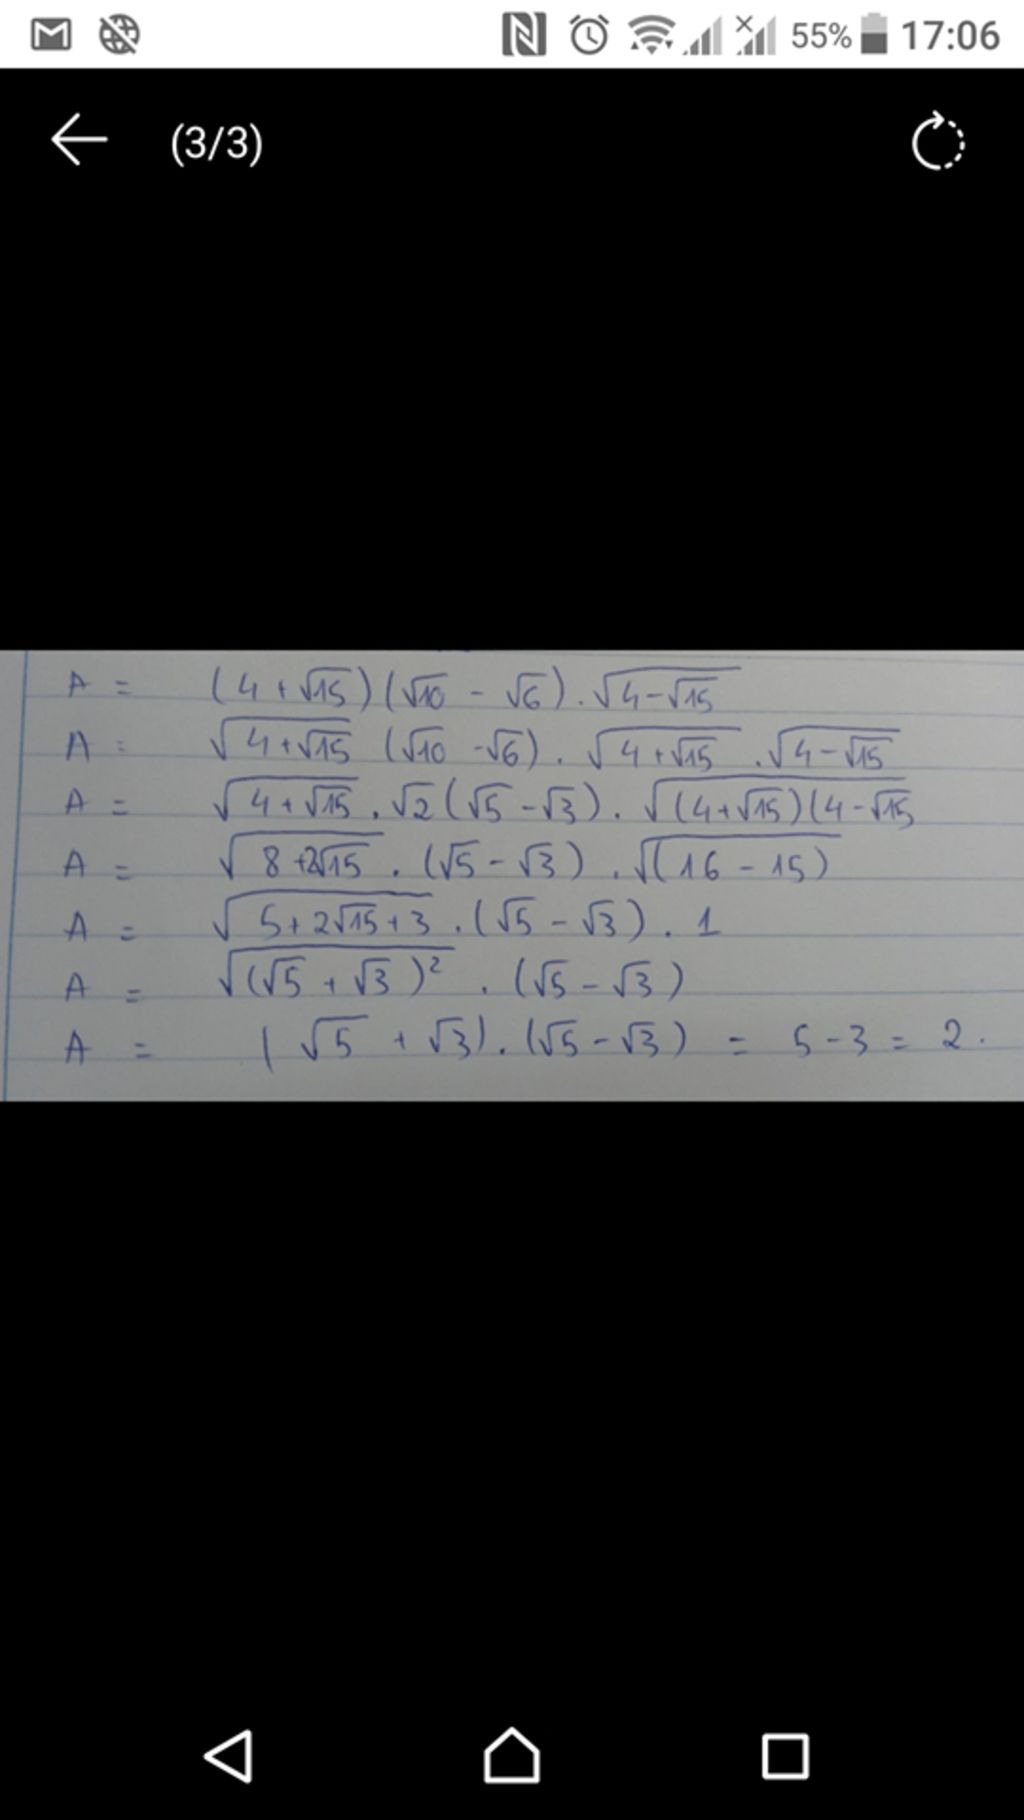 55% 17:06
(3/3)
A = (4 + √15)(√10 - √6) . √(4-√15)
A = √(4+√15) (√10 -√6) . √(4+√15) . √(4-√15)
A = √(4+√15) . √2 (√5 - √3) . √((4+√15)(4-√15
A = √(8+2√15) . (√5 - √3) . √(16 - 15)
A = √(5+2√15+3) . (√5 - √3) . 1
A = √((√5 + √3)²) . (√5 - √3)
A = (√5 + √3) . (√5 - √3) = 5 - 3 = 2.